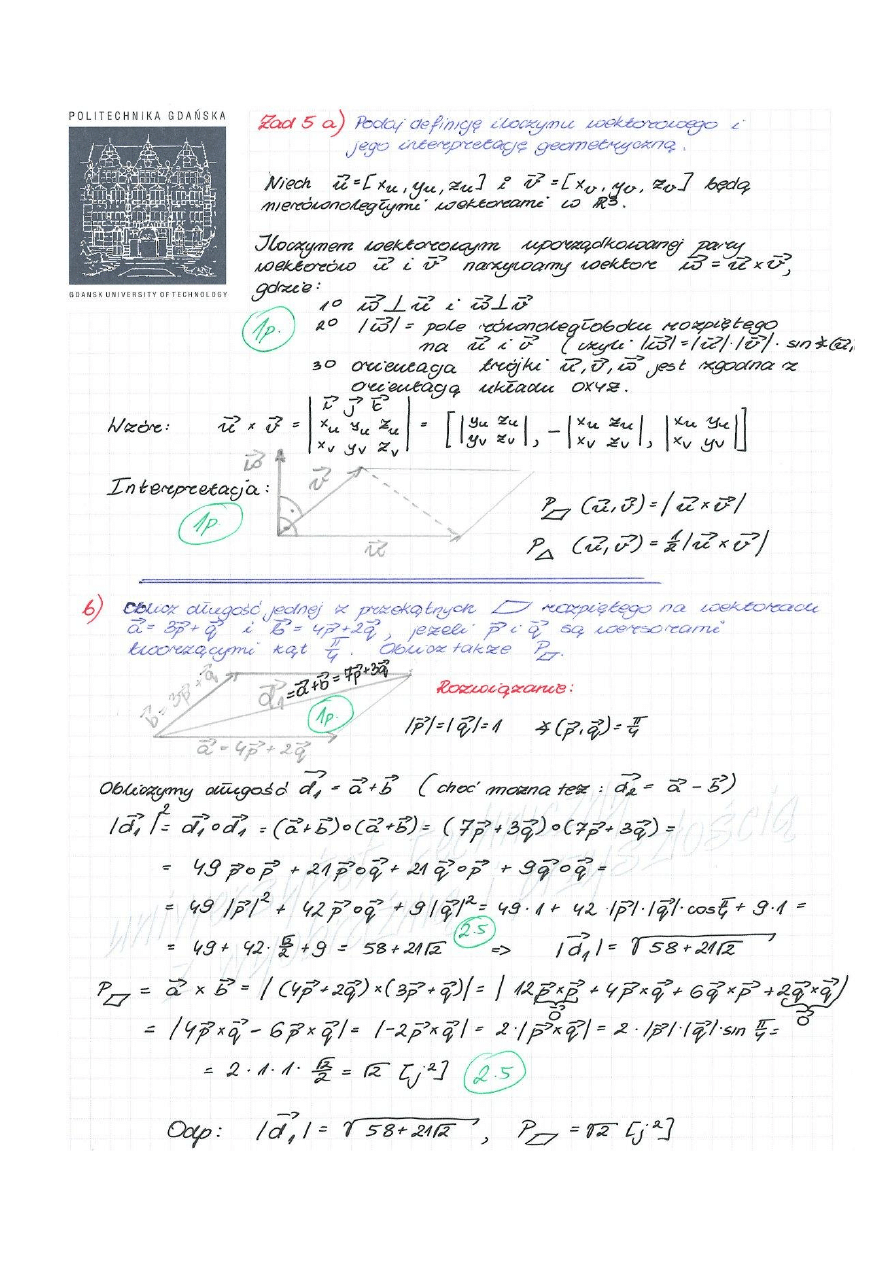 POLITECHNIKA GDAŃSKA
GDAŃSK UNIVERSITY OF TECHNOLOGY
Zad 5 a) Podaj definicję iloczynu wektorowego i
jego interpretację geometryczną.
Niech u⃗=[xu, yu, zu] i v⃗=[xv, yv, zv] będą
nierównoległymi wektorami w R³.
Iloczynem wektorowym uporządkowanej pary
wektorów u⃗ i v⃗ nazywamy wektor w⃗ = u⃗ × v⃗,
gdzie:
1° w⃗ ⊥ u⃗ i w⃗ ⊥ v⃗
1p.
2° |w⃗| = pole równoległoboku rozpiętego
na u⃗ i v⃗ (czyli |w⃗|=|u⃗|·|v⃗|· sin∢(u⃗,
3° orientacja trójki u⃗, v⃗, w⃗ jest zgodna z
orientacją układu OXYZ.
Wzór: u⃗ × v⃗ = |i⃗ j⃗ k⃗; xu yu zu; xv yv zv| = [|yu zu; yv zv|, −|xu zu; xv zv|, |xu yu; xv yv|]
Interpretacja:
1p.
w⃗
v⃗
u⃗
P▱ (u⃗,v⃗) = |u⃗ × v⃗|
P△ (u⃗,v⃗) = ½|u⃗ × v⃗|
b) Oblicz długość jednej z przekątnych ▱ rozpiętego na wektorach
a⃗ = 3p⃗+q⃗ i b⃗ = 4p⃗+2q⃗, jeżeli p⃗ i q⃗ są wersorami
tworzącymi kąt π/4. Oblicz także P▱.
b⃗ = 3p⃗ + q⃗
d⃗1 = a⃗+b⃗ = 7p⃗+3q⃗
1p.
a⃗ = 4p⃗ + 2q⃗
Rozwiązanie:
|p⃗|=|q⃗|=1 ∢(p⃗,q⃗)=π/4
Obliczymy długość d⃗1 = a⃗+b⃗ (choć można też: d⃗2 = a⃗ − b⃗)
|d⃗1|² = d⃗1∘d⃗1 = (a⃗+b⃗)∘(a⃗+b⃗) = (7p⃗+3q⃗)∘(7p⃗+3q⃗) =
= 49 p⃗∘p⃗ + 21p⃗∘q⃗ + 21q⃗∘p⃗ + 9q⃗∘q⃗ =
= 49 |p⃗|² + 42p⃗∘q⃗ + 9|q⃗|² = 49·1 + 42·|p⃗|·|q⃗|·cosπ/4 + 9·1 =
= 49 + 42·√2/2 + 9 = 58+21√2 2.5 => |d⃗1| = √(58+21√2)
P▱ = a⃗ × b⃗ = |(4p⃗+2q⃗)×(3p⃗+q⃗)| = |12p⃗×p⃗ + 4p⃗×q⃗ + 6q⃗×p⃗ + 2q⃗×q⃗|
0⃗ 0⃗
= |4p⃗×q⃗ − 6p⃗×q⃗| = |−2p⃗×q⃗| = 2·|p⃗×q⃗| = 2·|p⃗|·|q⃗|·sin π/4 =
= 2·1·1·√2/2 = √2 [j²] 2.5
Odp: |d⃗1| = √(58+21√2), P▱ = √2 [j²]